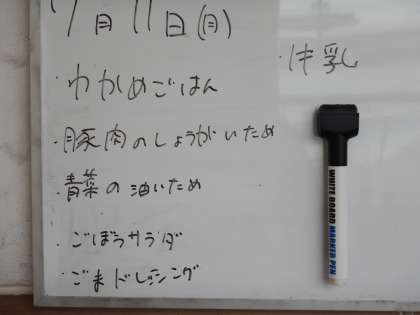 7月11日(月)
・わかめごはん
・豚肉のしょうがいため
・青菜の油いため
・ごぼうサラダ
・ごまドレッシング
・牛乳
WHITE BOARD MARKER PEN